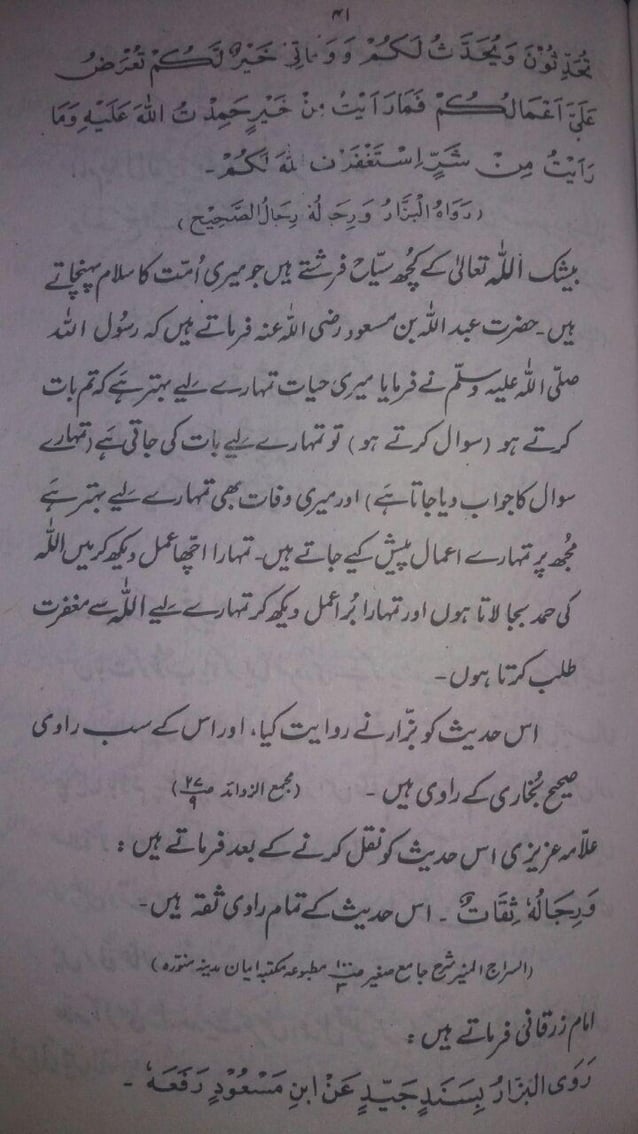 ۴۱
تُحَدِّثُوْنَ وَيُحَدَّثُ لَكُمْ وَوَفَاتِيْ خَيْرٌ لَّكُمْ تُعْرَضُ
عَلَيَّ اَعْمَالُكُمْ فَمَا رَاَيْتُ مِنْ خَيْرٍ حَمِدْتُ اللهَ عَلَيْهِ وَمَا
رَاَيْتُ مِنْ شَرٍّ اِسْتَغْفَرْتُ اللهَ لَكُمْ۔
(رَوَاهُ الْبَزَّارُ وَرِجَالُهٗ رِجَالُ الصَّحِيْحِ)
بیشک اللہ تعالیٰ کے کچھ سیّاح فرشتے ہیں جو میری اُمّت کا سلام پہنچاتے
ہیں۔ حضرت عبد اللہ بن مسعود رضی اللہ عنہ فرماتے ہیں کہ رسُول اللہ
صلّی اللہ علیہ وسلّم نے فرمایا میری حیات تمہارے لیے بہتر ہے کہ تم بات
کرتے ہو (سوال کرتے ہو) تو تمہارے لیے بات کی جاتی ہے (تمہارے
سوال کا جواب دیا جاتا ہے) اور میری وفات بھی تمہارے لیے بہتر ہے
مُجھ پر تمہارے اعمال پیش کیے جاتے ہیں۔ تمہارا اچّھا عمل دیکھ کر میں اللہ
کی حمد بجا لاتا ہوں اور تمہارا بُرا عمل دیکھ کر تمہارے لیے اللہ سے مغفرت
طلب کرتا ہوں۔
اس حدیث کو بزّار نے روایت کیا، اور اس کے سب راوی
صحیح بُخاری کے راوی ہیں۔ (مجمع الزوائد ص ۲۷/۹)
علّامہ عزیزی اس حدیث کو نقل کرنے کے بعد فرماتے ہیں :
وَرِجَالُهٗ ثِقَاتٌ۔ اس حدیث کے تمام راوی ثقہ ہیں۔
(السراج المنیر شرح جامع صغیر ص مطبوعہ مکتبہ ایمان مدینہ منوّرہ)
امام زرقانی فرماتے ہیں :
رَوَى الْبَزَّارُ بِسَنَدٍ جَيِّدٍ عَنْ ابْنِ مَسْعُوْدٍ رَفَعَهٗ۔